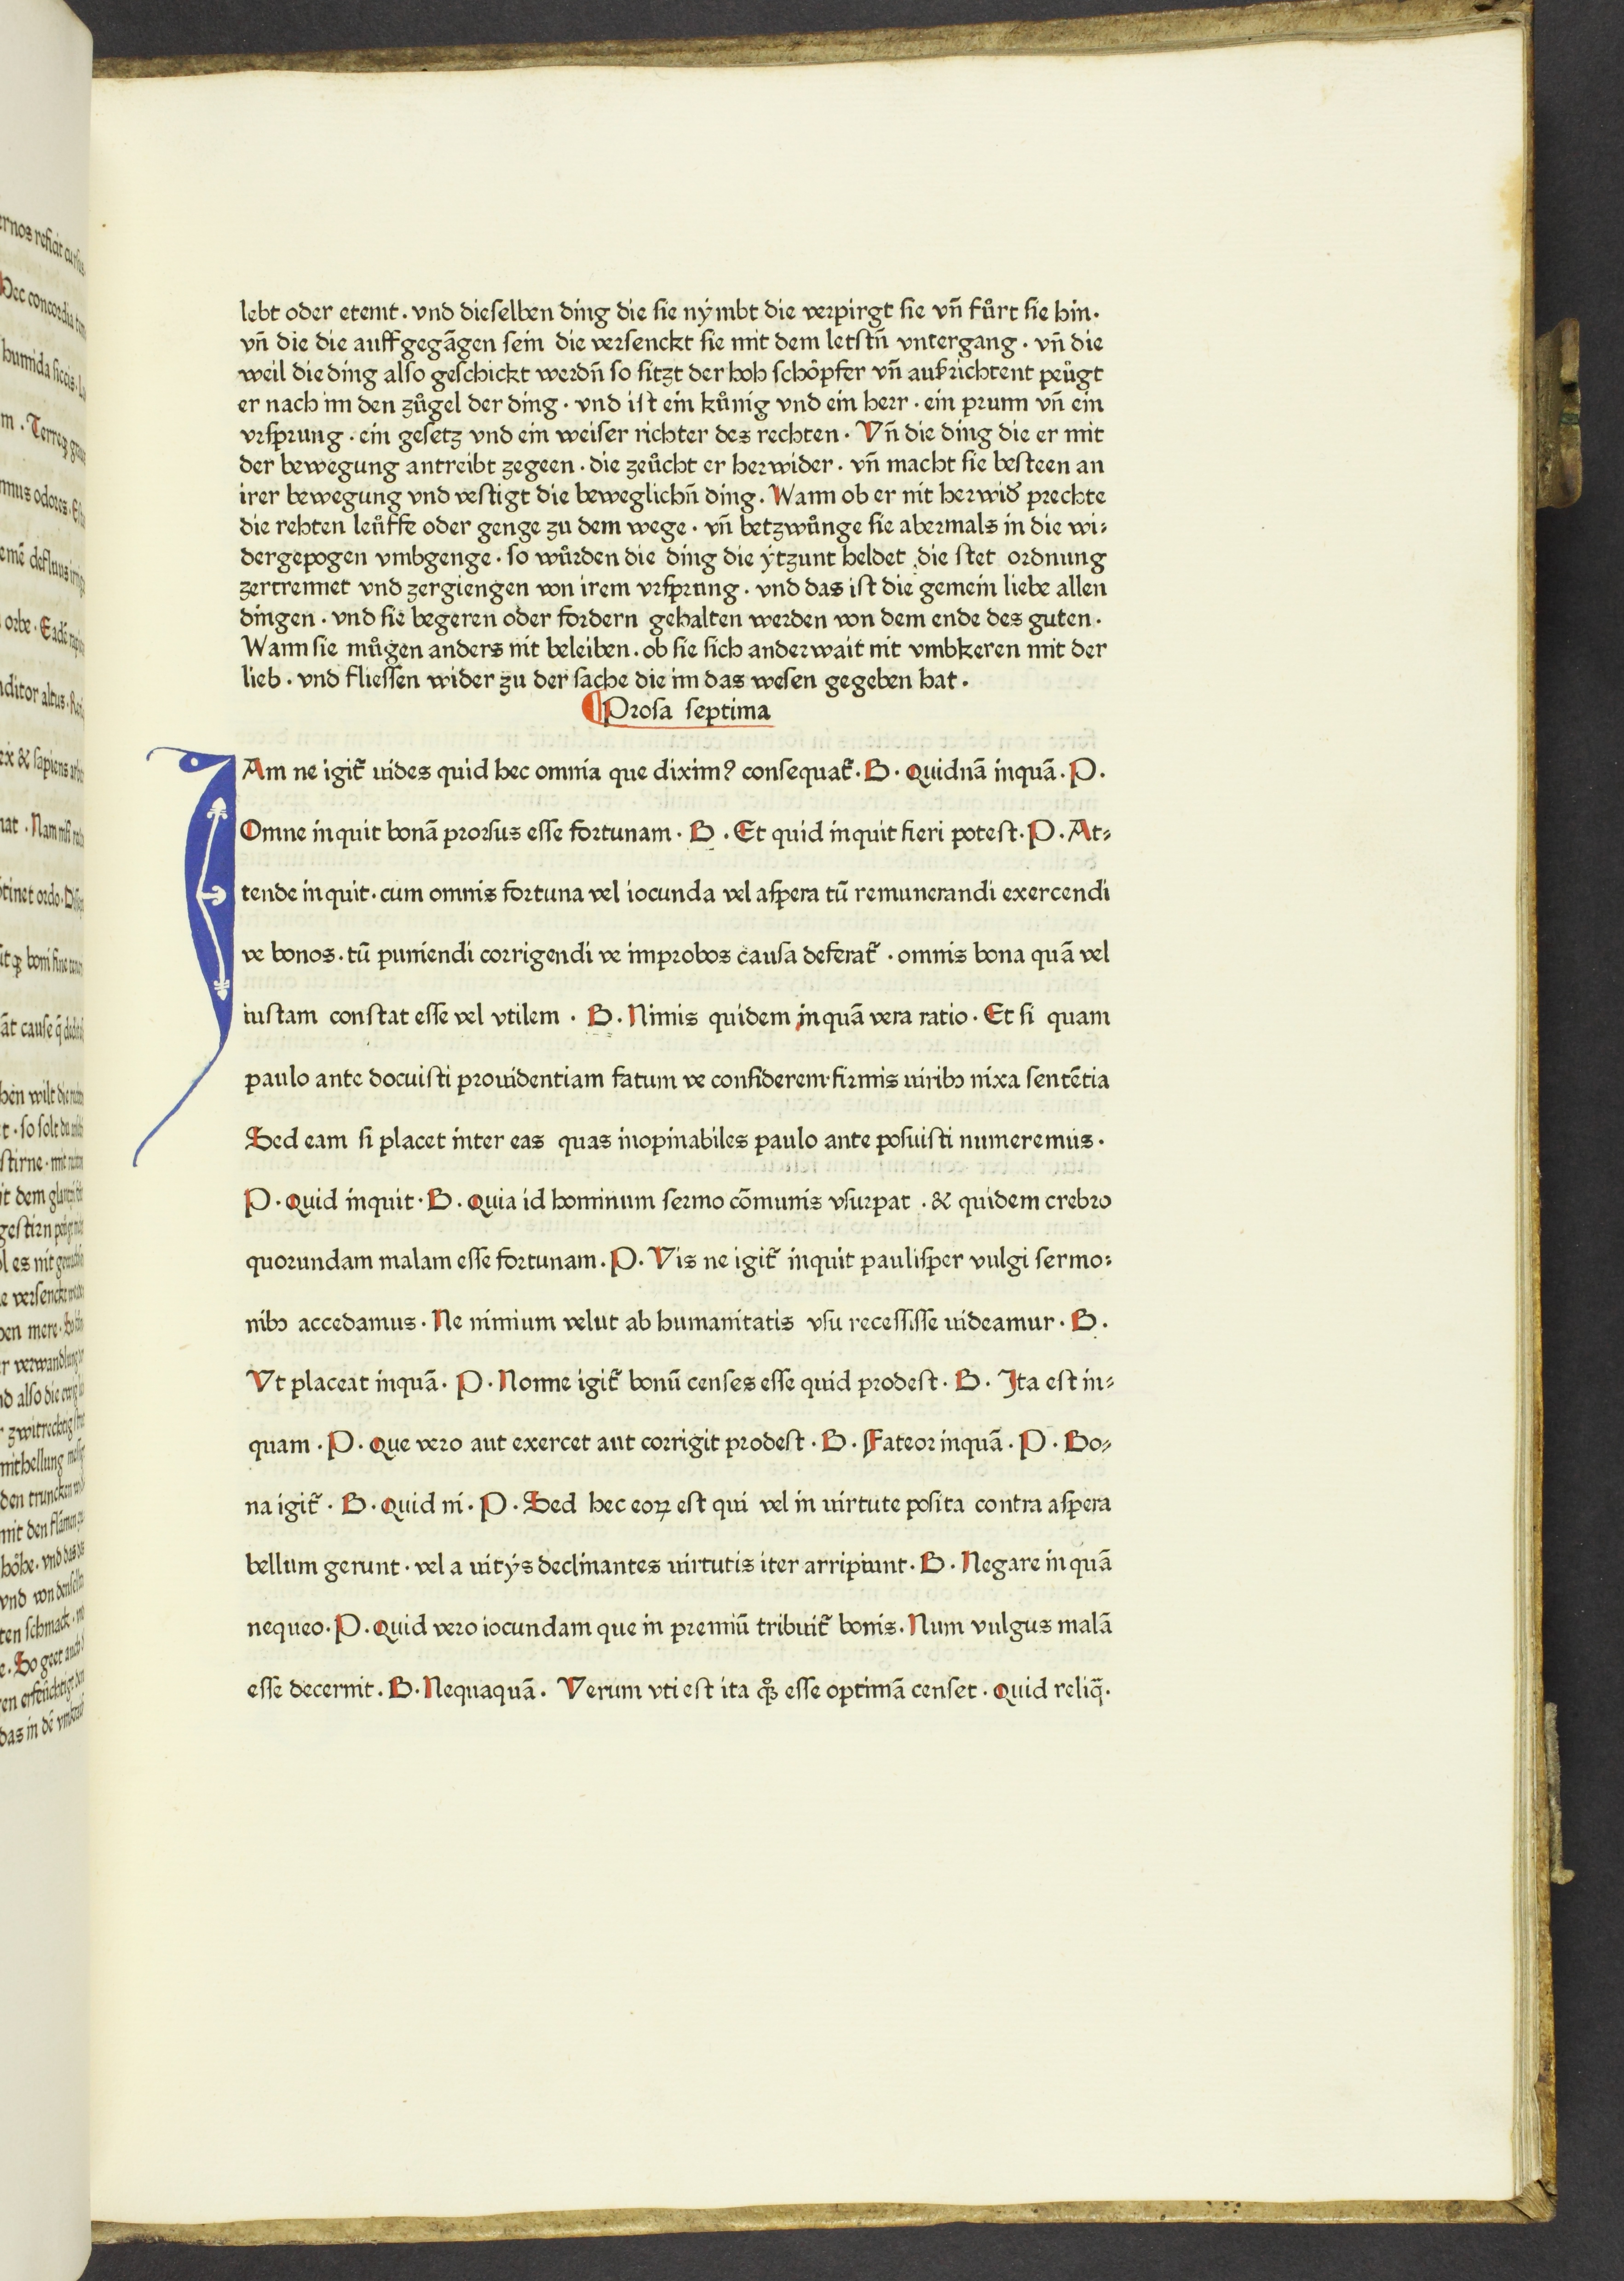 lebt oder etemt . vnd dieselben ding die sie nẏmbt die verpirgt sie vñ fůrt sie hin.
vñ die die auffgegãgen sein die versenckt sie mit dem letstñ vntergang . vñ die
weil die ding also geschickt werdñ so sitzt der hoh schöpfer vñ aufrichtent peůgt
er nach im den zůgel der ding . vnd ist ein kůnig vnd ein herr . ein prunn vñ ein
vrsprung . ein gesetz vnd ein weiser richter des rechten . Vñ die ding die er mit
der bewegung antreibt zegeen . die zeůcht er herwider . vñ macht sie besteen an
irer bewegung vnd vestigt die beweglichñ ding . Wann ob er nit herwid' prechte
die rehten leůffe oder genge zu dem wege . vñ betzwůnge sie abermals in die wi:
dergepogen vmbgenge . so wůrden die ding die ẏtzunt heldet die stet ordnung
zertrennet vnd zergiengen von irem vrsprung . vnd das ist die gemein liebe allen
dingen . vnd sie begeren oder fordern gehalten werden von dem ende des guten .
Wann sie můgen anders nit beleiben . ob sie sich anderwait nit vmbkeren mit der
lieb . vnd fliessen wider zu der sache die im das wesen gegeben hat .
¶ Prosa septima
IAm ne igit̃ uides quid hec omnia que dixim⁹ consequat̃ . B . Quidnã inquã . P .
Omne inquit bonã prorsus esse fortunam . B . Et quid inquit fieri potest . P . At:
tende inquit . cum omnis fortuna vel iocunda vel aspera tũ remunerandi exercendi
ve bonos . tũ puniendi corrigendi ve improbos causa deferat̃ . omnis bona quã vel
iustam constat esse vel vtilem . B . Nimis quidem inquã vera ratio . Et si quam
paulo ante docuisti prouidentiam fatum ve considerem . firmis uiribꝫ nixa sentẽtia
Sed eam si placet inter eas quas inopinabiles paulo ante posuisti numeremus .
P . Quid inquit . B . Quia id hominum sermo cõmunis vsurpat . & quidem crebro
quorundam malam esse fortunam . P . Vis ne igit̃ inquit paulisper vulgi sermo:
nibꝫ accedamus . Ne nimium velut ab humanitatis vsu recessisse uideamur . B .
Vt placeat inquã . P . Nonne igit̃ bonũ censes esse quid prodest . B . Ita est in:
quam . P . Que vero aut exercet aut corrigit prodest . B . Fateor inquã . P . Bo:
na igit̃ . B . Quid ni . P . Sed hec eoꝝ est qui vel in uirtute posita contra aspera
bellum gerunt . vel a uitÿs declinantes uirtutis iter arripiunt . B . Negare inquã
nequeo . P . Quid vero iocundam que in premiũ tribuit̃ bonis . Num vulgus malã
esse decernit . B . Nequaquã . Verum vti est ita qͦꝫ esse optimã censet . Quid reliq̃ .